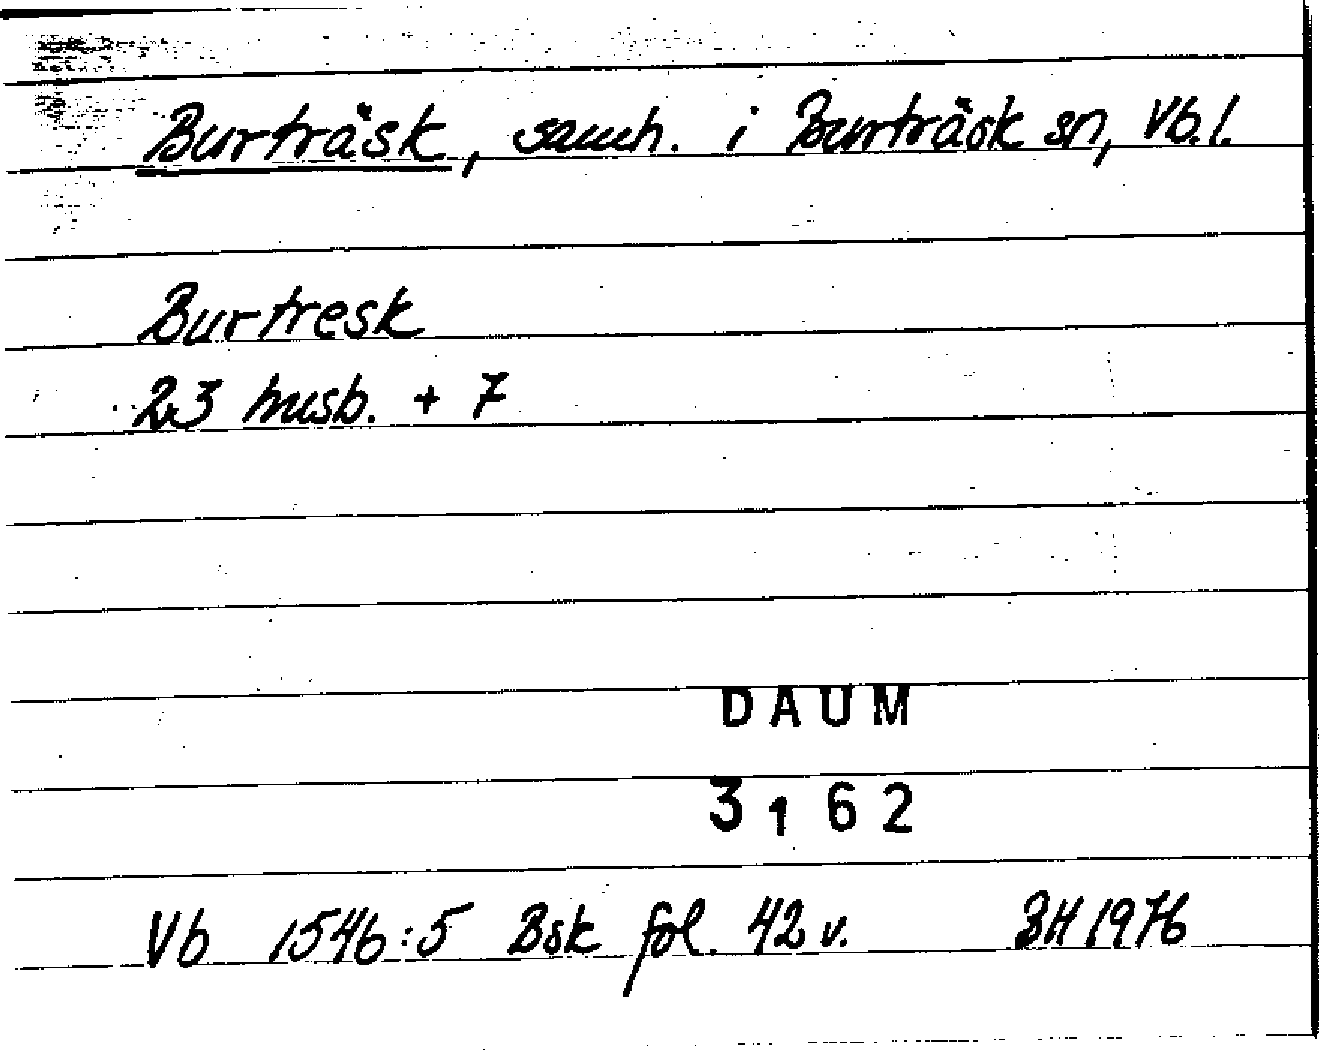 Burträsk, samh. i Burträsk sn, Vb.l.
Burtresk
23 husb. + 7
DAUM
3162
Vb 1546:5 Bsk fol. 42 v. BH 1976